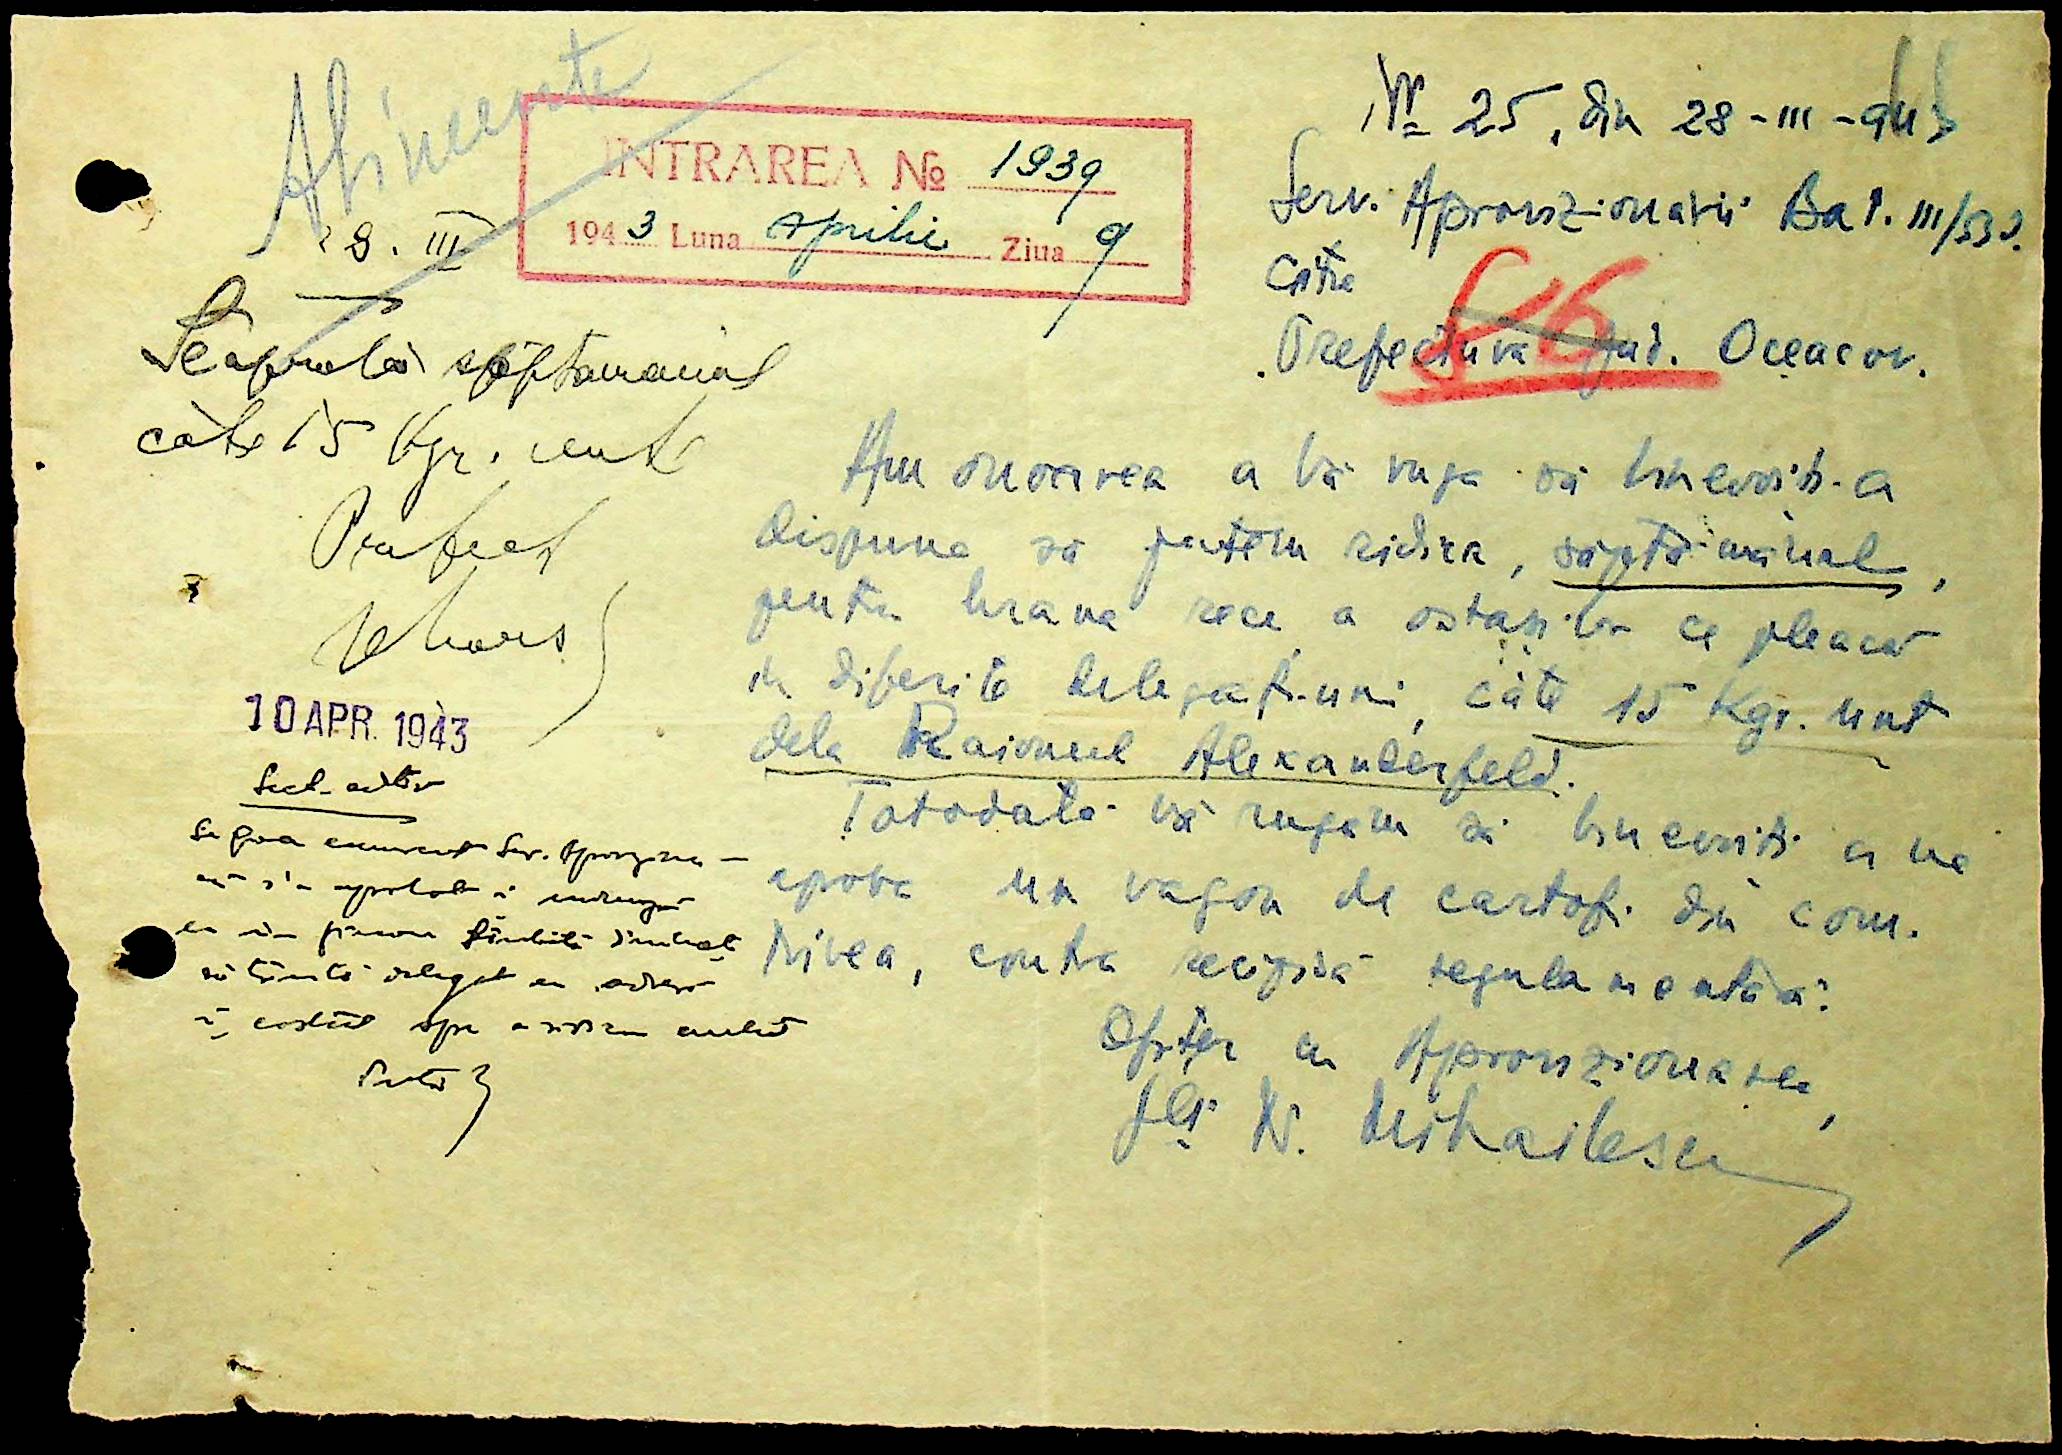 Alimente
INTRAREA № 1939
1943 Luna aprilie Ziua 9
№ 25, din 28-III-943
Serv. Aprovizionării Bat. III/
către
Prefectura Jud. Oceacov.
28. III
Se aprobă săptamanal
câte 15 Kgr. unt
Prefect
10 APR. 1943
Am onoarea a vă ruga să binevoiți a
dispune să putem ridica, săptămânal,
pentru hrana rece a ostașilor ce pleacă
în diferite delegațiuni, câte 15 Kgr. unt
dela Raionul Alexanderfeld.
Totodată vă rugăm să binevoiți a ne
aproba un vagon de cartofi din com.
contra recipisă regulamentară.
Ofițer cu Aprovizionarea,
N. Mihailescu
Se va Serv. Aproviziona-
că s'a aprobat
să trimită delegat cu adresă
spre a ridica